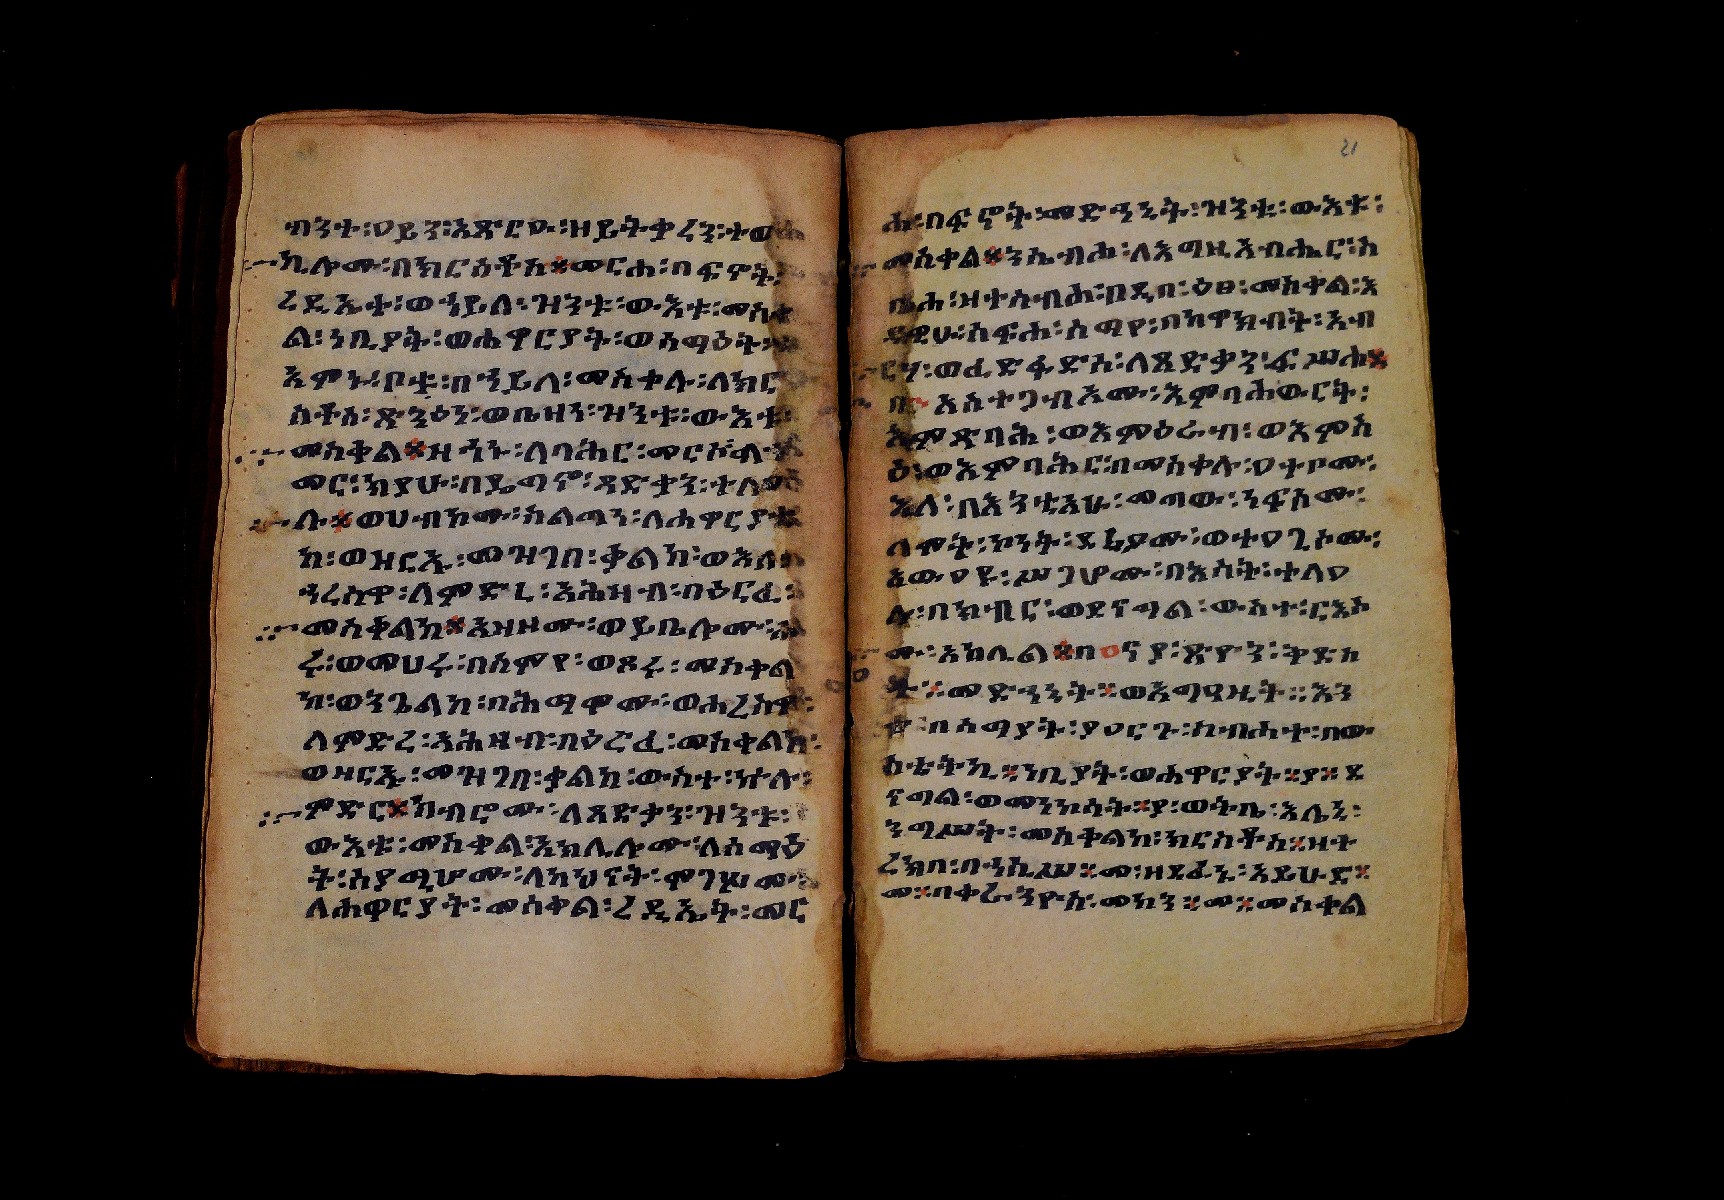 ብንተ፡ዐይን፡እጽርዑ፡ዘይትቃረን፡ተወ
ኪሎሙ፡በክርስቶስ፨መርሐ፡በፍኖት፡
ረዲኢቱ፡ወኀይለ፡ዝንቱ፡ውእቱ፡መስቀ
ል፡ነቢያት፡ወሐዋርያት፡ወሰማዕት፡
እምኑ፡ቦቱ፡በኀይለ፡መስቀሉ፡ለክር
ስቶስ፡ጽንዕን፡ወቤዛነ፡ዝንቱ፡ውእቱ፡
መስቀል፨ዘኀኑ፡ለባሕር፡መርሶ
መር፡ኪያሁ፡በጼጥሮ፡ጻድቃን፡ተለዐ
ሉ፨ወሀብኮሙ፡ስልጣን፡ለሐዋርያቲ
ከ፡ወዝርኢ፡መዝገበ፡ቃልከ፡ወእለ
ኀረስዋ፡ለምድረ፡አሕዛብ፡በዕርፈ፡
መስቀልከ፨አዘዞሙ፡ወይቤሎሙ፡
ሩ፡ወመሀሩ፡በስምየ፡ወጹሩ፡መስቀል
የ፡ወንጌልከ፡በሕማዋሙ፡ወሐረስዋ፡
ለምድረ፡አሕዛብ፡በዕርፈ፡መስቀልከ፡
ወዘርኢ፡መዝገበ፡ቃልከ፡ውስተ፡ኵሉ፡
ምድር፨ክብሮሙ፡ለጻድቃን፡ዝንቱ፡
ውእቱ፡መስቀል፡አክሊሎሙ፡ለሰማዕ
ት፡ስያሚሆሙ፡ለካህናት፡ሞገሶሙ፡
ለሐዋርያት፡መስቀል፡ረዲኤት፡መር
ሐ፡በፍኖት፡መድኀኒት፡ዝንቱ፡ውእቱ፡
መስቀል፨ንሴብሕ፡ለእግዚአብሔር፡ስ
ቡሕ፡ዘተሰብሐ፡በዲበ፡ዕፀ፡መስቀል፡እ
ደዊሁ፡ሰፍሐ፡ሰማየ፡በከዋክብት፡አብ
ርሃ፡ወፈድፋድሰ፡ለጻድቃን፡ፍሥሐ፨
በ አስተጋብአሙ፡እምባሕውርት፡
እምጽባሕ፡ወእምዕራብ፡ወእምሰ
ዕ፡ወእምባሕር፡በመስቀሉ፡ዐተቦሙ፡
እለ፡በእንቲአሁ፡መጠው፡ነፍሶሙ፡
ለሞት፡ኮነት፡ደኃሪቶሙ፡ወተዐጊሶሙ፡
እውዐዩ፡ሥጋሆሙ፡በእሳት፡ተለዐ
ሉ፡በክብር፡ወደናግል፡ውስተ፡ርእሰ
ሙ፡አክሊል፨በዐናያ፡ጽዮን፡ቅድስ
ት፨መድኀኒት፨ወእግዓዚት፡፡እን
ተ፡በሰማያት፡ያዐርጉ፡ስብሐተ፡በው
ስቴትኪ፨ነቢያት፡ወሐዋርያት፨ያ፨ደ
ናግል፡ወመነኮሳት፨ያ፡ወትቤ፡እሌኒ፡
ንግሥት፡መስቀልከ፡ክርስቶስ፨ዘተ
ረክበ፡በጎኪሡ፨መ፡ዘደፈኑ፡አይሁድ፨
መ፨በቀራንዮስ፡መካን፨መ፨መስቀል